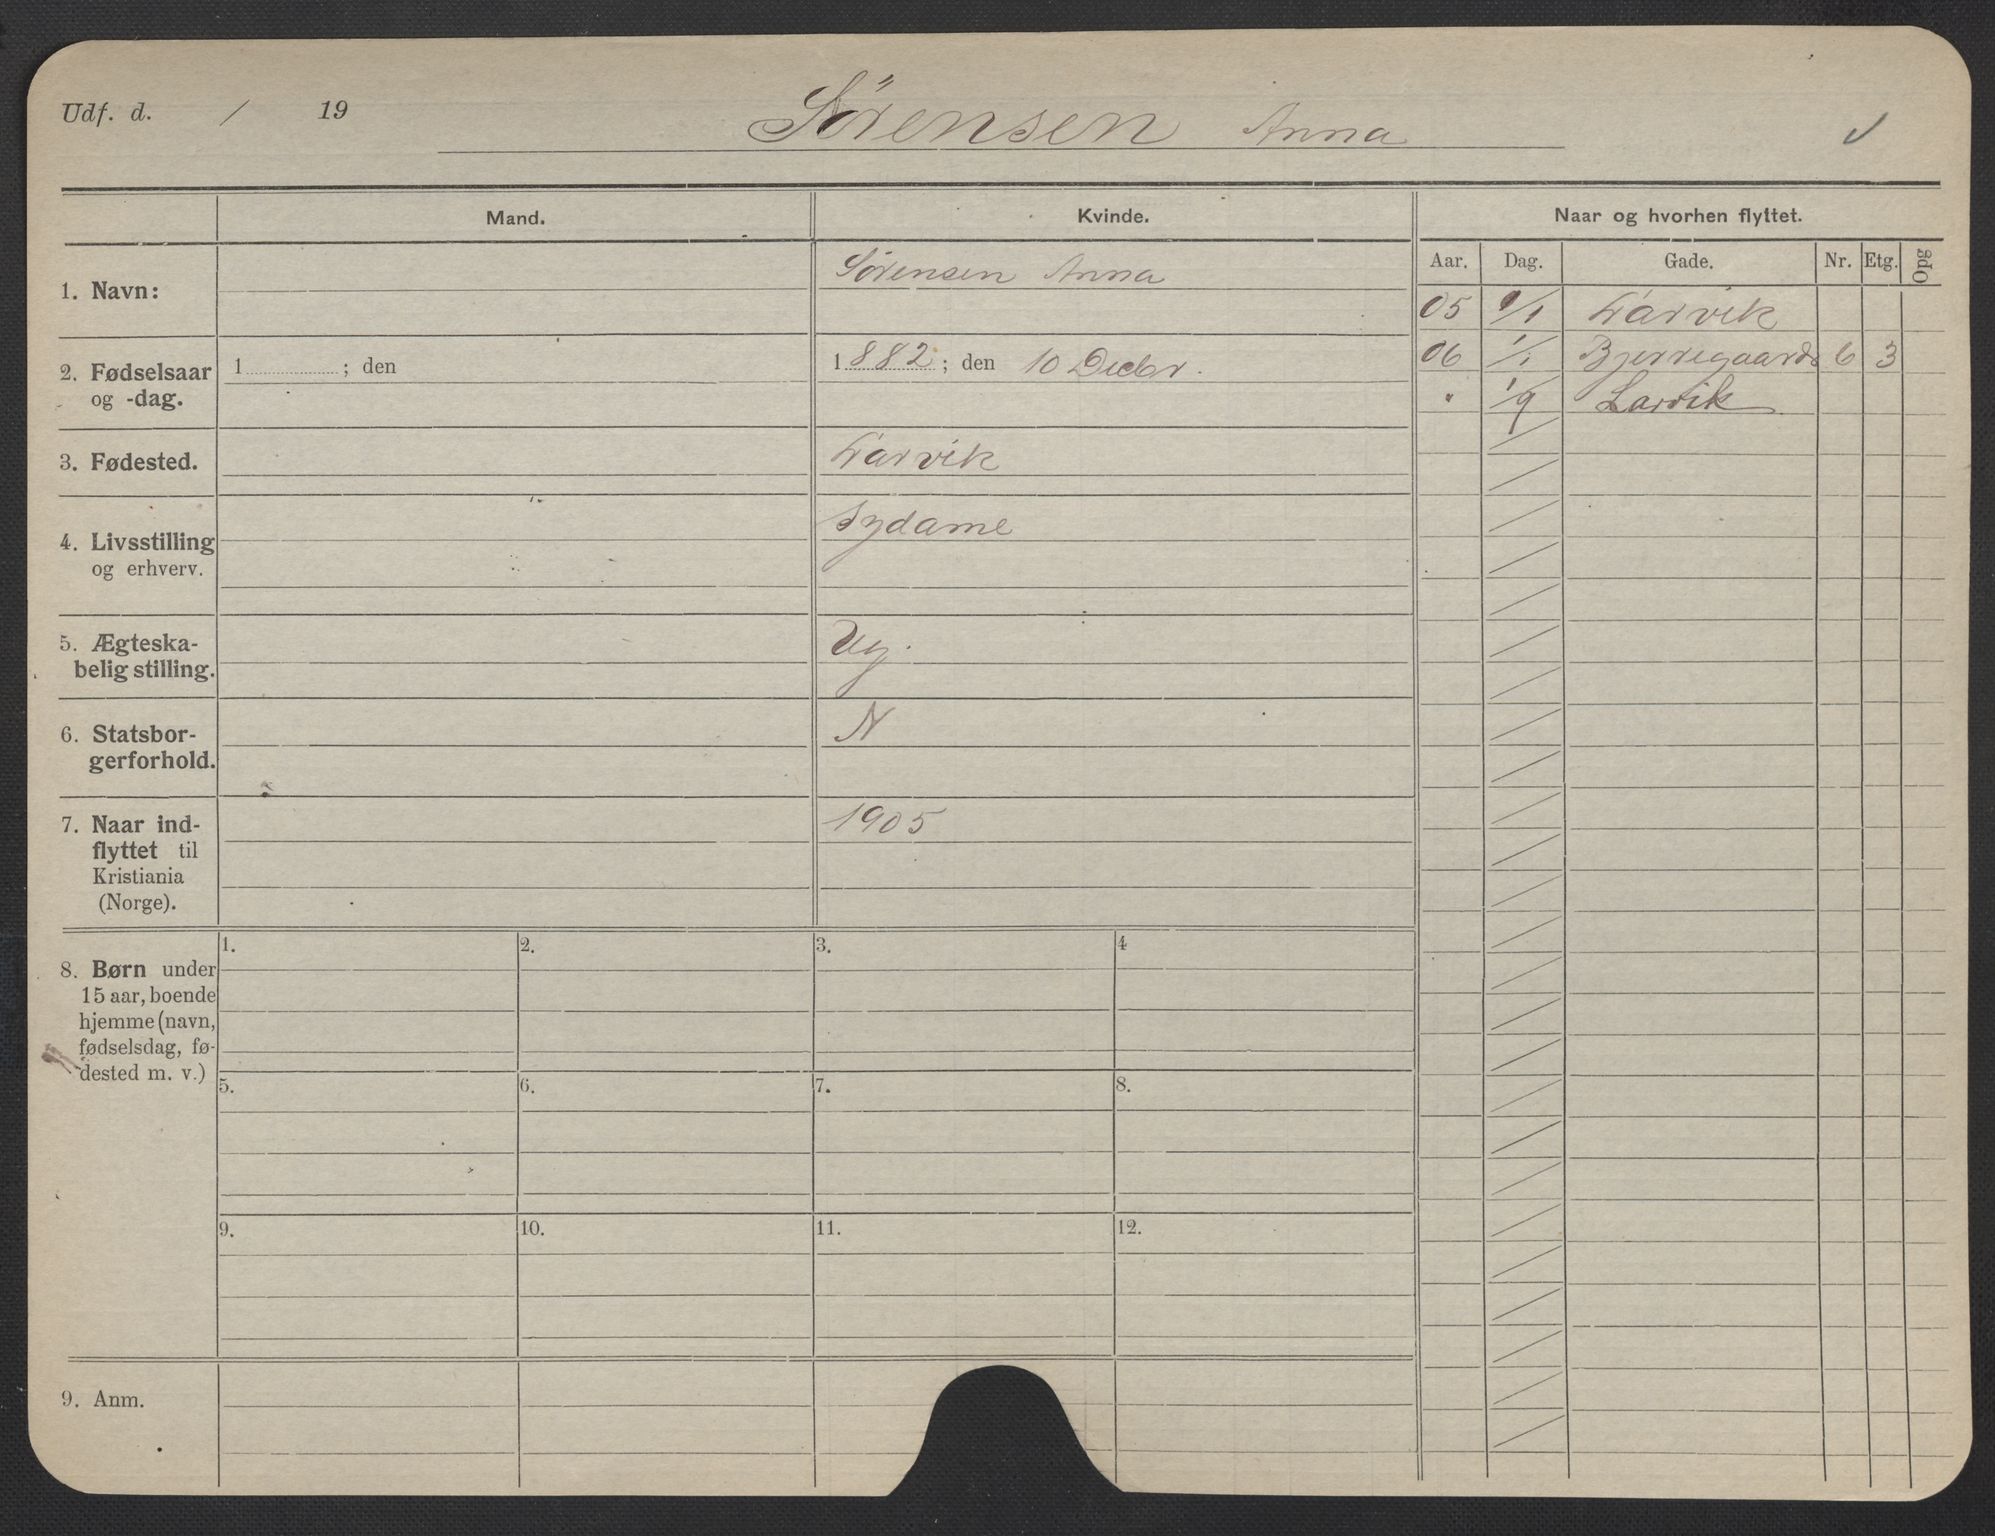 Udf. d. / 19 Sörensen Anna
Mand. Kvinde. Naar og hvorhen flyttet.
Aar. Dag. Gade. Nr. Etg. Opg
1. Navn: Sörensen Anna
05 9/1 Larvik
06 1/1 Bjerregaards 6 3
" 1/9 Larvik
2. Fødselsaar 1 ; den 1882 ; den 10 Decbr.
og -dag.
3. Fødested. Larvik
4. Livsstilling Sydame
og erhverv.
5. Ægteska- Ug.
belig stilling.
6. Statsbor- N
gerforhold.
7. Naar ind- 1905
flyttet til
Kristiania
(Norge).
8. Børn under
15 aar, boende
hjemme (navn,
fødselsdag, fø-
dested m. v.)
1. 2. 3. 4
5. 6. 7. 8.
9. 10. 11. 12.
9. Anm.